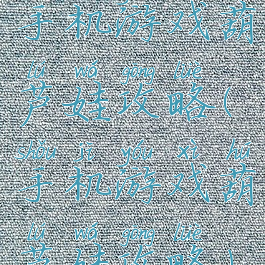 手机游戏葫
lú wá gōng lüè
芦娃攻略(
shǒu jī yóu xì hú
手机游戏葫
lú wá gōng lüè
芦娃攻略)